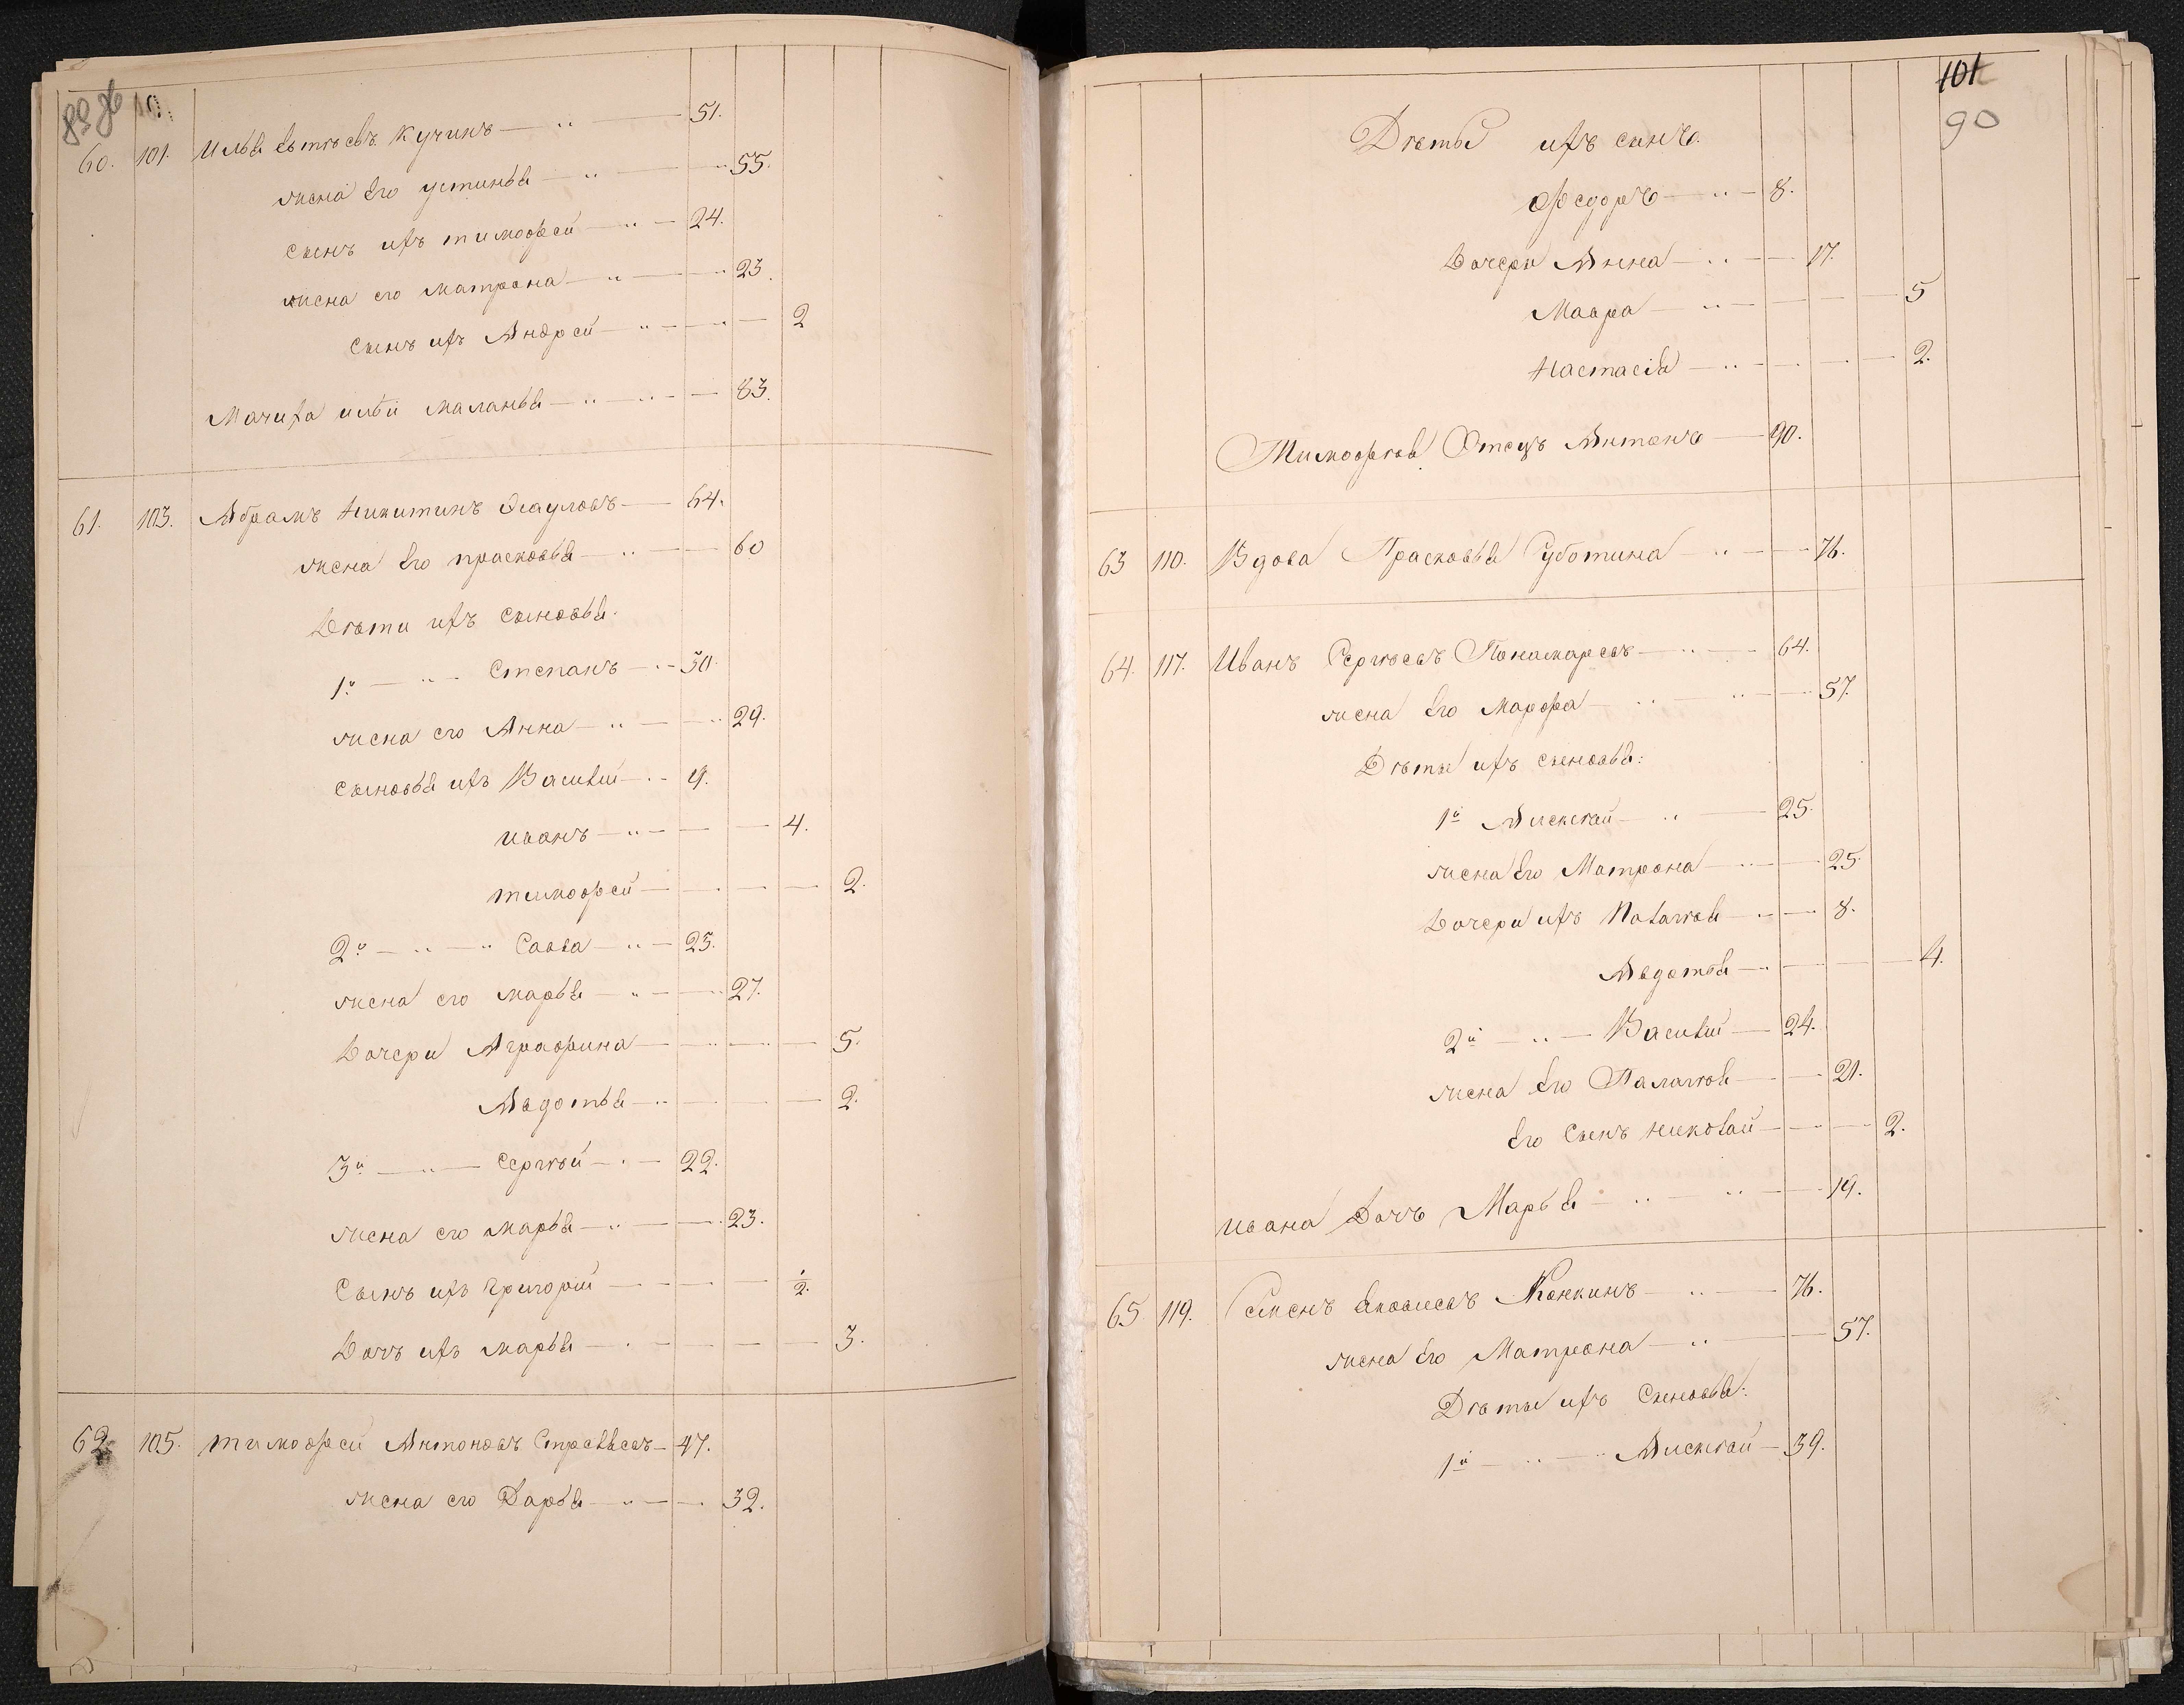 89 90
60. 101. Илья Евтѣевъ Кучинъ — 51.
жена Его устинья — 55.
Сынъ ихъ тимофей — 24.
жена его матрона — 23.
Сынъ ихъ Андрей — 2
Мачиха ильи маланья — 83.
61. 103. Абрамъ Никитинъ Есауловъ — 64.
жена Его прасковья — 60
Дѣти ихъ сыновья.
1й — Степанъ — 30.
жена его Анна — 29.
Сыновья ихъ Василій — 9.
иванъ — 4.
тимофей — 2.
2й — Савва — 25.
жена его марья — 27.
Дочери Аграфина — 5.
Авдотья — 2.
3й — Сергѣй — 22.
жена его марья — 23.
Сынъ ихъ Григорій — 1/2.
Дочь ихъ марья — 3.
62. 105. тимофей Антоновъ — 47.
жена его Дарья — 32.
101
90
Дѣты ихъ сынъ.
Федоръ — 8.
Дочери Анна — 17.
Мавра — 5
Настасія — 2.
Тимофѣя Отецъ Антонъ — 90.
63 110. Вдова Прасковья Суботина — 76.
64. 117. Иванъ Сергѣевъ Понамаревъ — 64.
жена Его Марфа — 57.
Дѣты ихъ сыновья:
1й Алексѣй — 25.
жена Его Матрона — 25.
Дочери ихъ Палагѣя — 8.
Авдотья — 4.
2й — Василій — 24.
жена Его Палагѣя — 21.
Его Сынъ николай — 2.
ивана Дочь Марья — 19.
65 119. Семенъ Яковлевъ Конкинъ — 76.
жена Его Матрона — 57.
Дѣты ихъ Сыновья:
1й — Алексѣй — 39.